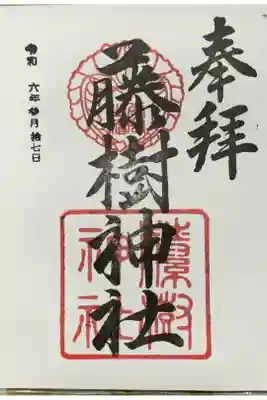 奉拝
藤樹神社
藤樹神社
令和 六年 参月 拾七日